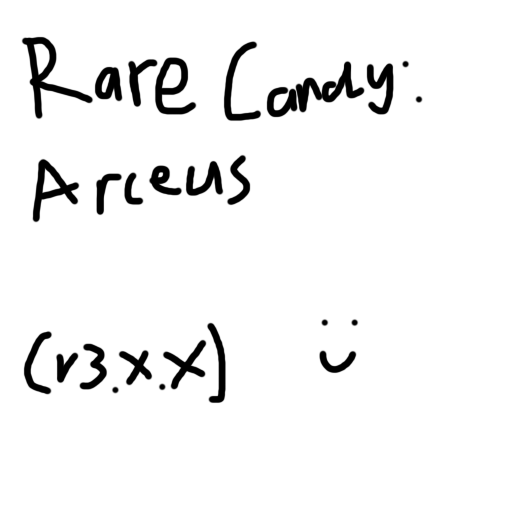 Rare Candy:
Arceus
(v3.x.x]